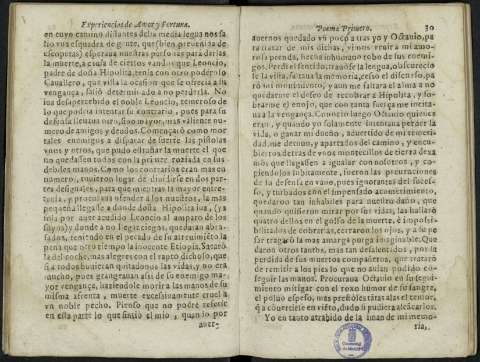 Experiencias de Amor y Fortuna.
en cuyo camino distantes della media legua nos sa
lio vna esquadra de gente, que (bien preuenida de
escopetas) esperaua nuestras personas para darlas
la muerte, a causa de ciertos vandos que Leoncio,
padre de doña Hipolita, tenia con otro poderoso
Cauallero, que vista la ocasion que se ofrecia a su
vengança, salió determinado a no perderla. No
iua desapercebido el noble Leoncio, temeroso de
lo que podia intentar su contrario, pues para su
defensa lleuaua
mero de amigos y deudos. Començaronse como mor
tales enemigos a disparar de suerte las pistolas
vnos y otros, que pudo estrañar la muerte el que
no quedassen todos con la primera rociada en sus
debiles manos. Como los contrarios eran mas en
numero, tuuieron lugar de diuidirse en dos par
tes desiguales, para que mientras la mayor entre
tenia, y procuraua ofender a los nuestros, la mas
pequeña llegasse a donde doña Hipolita iua, (ya
sola por auer acudido Leoncio al amparo de los
suyos) y donde a no llegar ciegos, quedaran abra
sados, teniendo en el pecado de su atreuimiento la
pena que otro tiempo la inocente Etiopia. Sacaro
la del coche, mas alegres con el rapto dichoso, que
si a todos huuieran quitadonos las vidas, y no era
mucho, pues grangeauan assi de su enemigo ma
yor vengança, haziendole morir a las manos de su
misma afrenta, muerte excessiuamente cruel a
vn noble pecho. Pienso que no podre referir
en esta parte lo que sintio el mio, quando por
auer-
Poema Primero. 30
auernos quedado vn poco atras yo y Octauio, pa
ra tratar de mis dichas, vimos venir a mi amo-
rosa prenda, hecha inhumano robo de sus enemi-
gos. Perdi el sentido, trauóse la lengua, obscurecio
se la vista, faltaua la memoria, cesó el discurso, pa
ró mi mouimiento, y aun me faltara el alma a no
quedarme el deseo de recobrar a Hipolita, y so-
brarme el enojo, que con tanta fuerça me incita-
ua a la vengança. Conocio luego Octauio quienes
eran, y quando yo solamente intentaua perder la
vida, o ganar mi dueño, aduertido de mi temeri-
dad, me detuuo, y apartados del camino, y encu-
biertos detras de vnos montezillos de tierra dexa
mos que llegassen a igualar con nosotros, y co-
giendolos subitamente, fueron las preuenciones
de su defensa en vano, pues ignorantes del suces-
so, y turbados con el impensado acometimiento,
quedaron tan inhabiles para nuestro daño, que
quando quisieron mirar por sus vidas, las hallaro
quatro dellos en el golfo de la muerte, e impossi-
bilitadas de cobrarlas, cerraron los ojos, y a su pe
sar tragaron la mas amarga purga imaginable. Que
daron otros tantos, mas tan desalentados, por la
perdida de sus muertos compañeros, que trataro
de remitir a los pies lo que no auian podido con-
seguir las manos. Procuraua Octauio en su segui-
miento mitigar con el roxo humor de su sangre,
el poluo espeso, mas presteles tantas alas el temor,
q a conuertirse en viento, dudo si pudiera alcãçarlos.
Yo en tanto atrahido de la iman de mi memo-
ria,